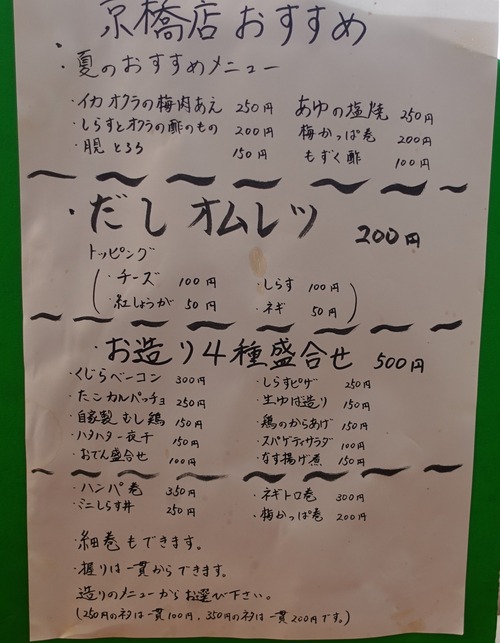 京橋店おすすめ
・夏のおすすめメニュー
・イカオクラの梅肉あえ 250円 あゆの塩焼 250円
・しらすとオクラの酢のもの 200円 梅かっぱ巻 200円
150円 もずく酢 100円
・だしオムレツ 200円
トッピング
・チーズ 100円 ・しらす 100円
・紅しょうが 50円 ・ネギ 50円
・お造り4種盛合せ 500円
・くじらベーコン 300円 ・しらすピザ 250円
・たこカルパッチョ 250円 ・生ゆば造り 150円
・自家製むし鶏 150円 ・鶏のからあげ 150円
・ハタハタ一夜干 150円 ・スパゲティサラダ 100円
・おでん盛合せ 100円 ・なす揚げ煮 150円
・ハンパ巻 350円 ・ネギトロ巻 300円
・ミニしらす丼 250円 ・梅かっぱ巻 200円
・細巻もできます。
・握りは一貫からできます。
造りのメニューからお選び下さい。
(250円のネタは一貫100円、350円のネタは一貫200円です。)